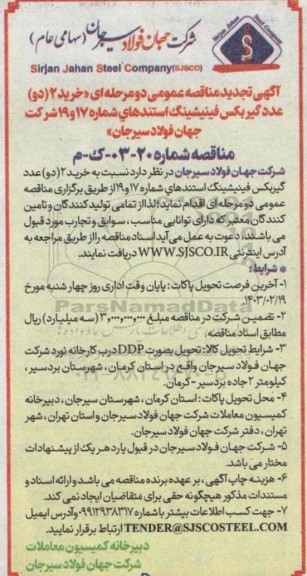 شرکت جهان فولاد سیرجان (سهامی عام)
Sirjan Jahan Steel Company(SJSCO)
آگهی تجدید مناقصه عمومی دو مرحله ای «خرید ۲ (دو)
عدد گیربکس فینیشینگ استندهای شماره ۱۷ و ۱۹ شرکت
جهان فولاد سیرجان»
مناقصه شماره ۲۰-۰۳-ک-م
شرکت جهان فولاد سیرجان در نظر دارد نسبت به خرید ۲ (دو) عدد
گیربکس فینیشینگ استندهای شماره ۱۷ و ۱۹ از طریق برگزاری مناقصه
عمومی دو مرحله ای اقدام نماید؛ لذا از تمامی تولیدکنندگان و تامین
کنندگان معتبر که دارای توانایی مناسب، سوابق و تجارب مورد قبول
می باشند، دعوت به عمل می آید اسناد مناقصه را از طریق مراجعه به
آدرس اینترنتی WWW.SJSCO.IR دریافت نمایند.
* شرایط:
۱- آخرین فرصت تحویل پاکات: پایان وقت اداری روز چهار شنبه مورخ
۱۴۰۳/۰۲/۱۹.
۲- تضمین شرکت در مناقصه مبلغ ۳,۰۰۰,۰۰۰,۰۰۰ (سه میلیارد) ریال
مطابق اسناد مناقصه.
۳- شرایط تحویل کالا: تحویل بصورت DDP درب کارخانه نورد شرکت
جهان فولاد سیرجان واقع در استان کرمان، شهرستان بردسیر،
کیلومتر ۲ جاده بردسیر - کرمان.
۴- محل تحویل پاکات: استان کرمان، شهرستان سیرجان، دبیرخانه
کمیسیون معاملات شرکت جهان فولاد سیرجان و استان تهران، شهر
تهران، دفتر شرکت جهان فولاد سیرجان.
۵- شرکت جهان فولاد سیرجان در قبول یا رد هر یک از پیشنهادات
مختار می باشد.
۶- هزینه چاپ آگهی، بر عهده برنده مناقصه می باشد و ارائه اسناد و
مستندات مذکور هیچگونه حقی برای متقاضیان ایجاد نمی کند.
۷- جهت کسب اطلاعات بیشتر با شماره ۰۹۹۱۲۹۳۸۳۱۷ و آدرس ایمیل
TENDER@SJSCOSTEEL.COM ارتباط برقرار نمایید.
دبیرخانه کمیسیون معاملات
شرکت جهان فولاد سیرجان
ParsNamadData